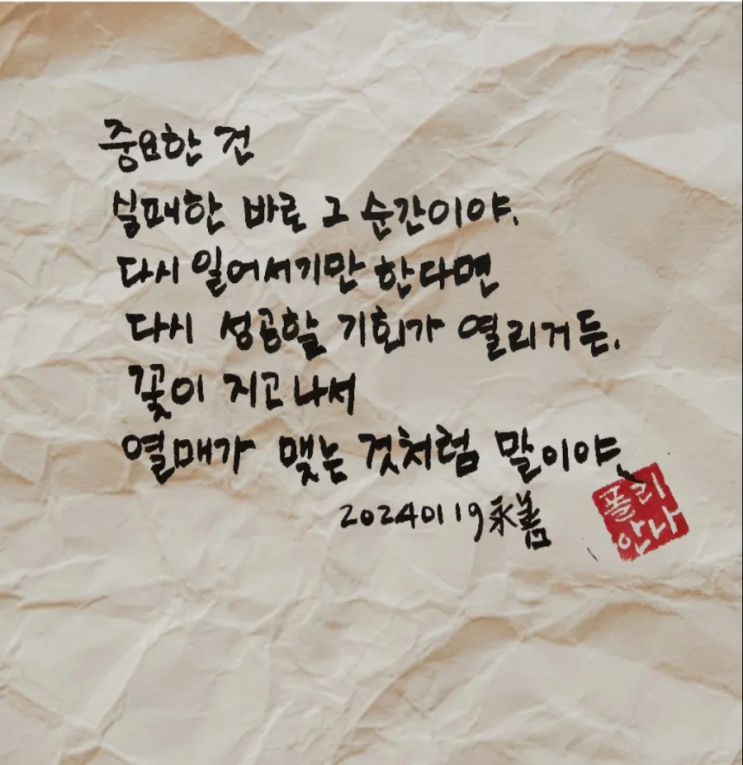 중요한 건
실패한 바로 그 순간이야.
다시 일어서기만 한다면
다시 성공할 기회가 열리거든.
꽃이 지고 나서
열매가 맺는 것처럼 말이야.
20240119 永善
폴리
안나